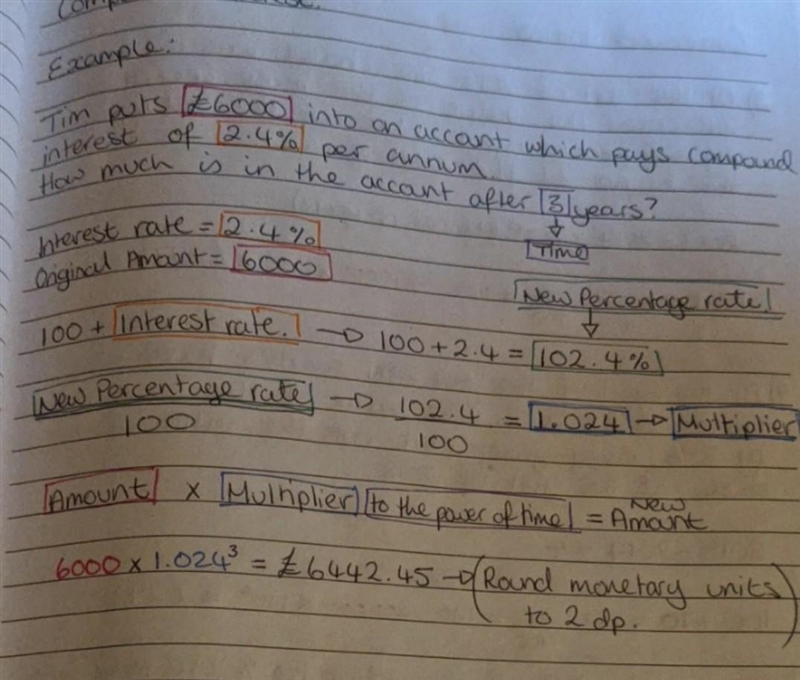 Example:
Tim puts £6000 into an accant which pays compound
interest of 2.4% per annum.
How much is in the accant after 3 years?
Time
Interest rate = 2.4%
Original Amount = 6000
New Percentage rate!
100 + Interest rate. → 100 + 2.4 = 102.4%
New Percentage rate → 102.4 = 1.024 → Multiplier
100 100
Amount x Multiplier to the power of time = New Amount
6000 x 1.024³ = £6442.45 → (Round monetary units
to 2 dp.)